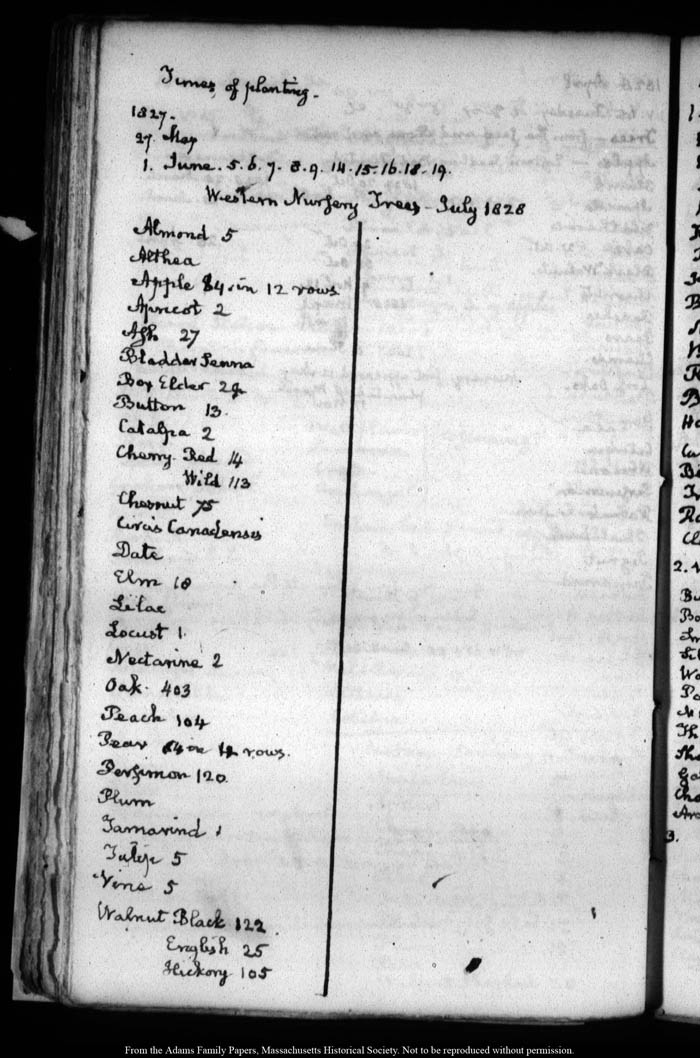 Times of planting.
1827.
27. May
1. June. 5. 6. 7. 8. 9. 14. 15. 16. 18. 19.
Western Nursery Trees - July 1828
Almond 5
Althea
Apple 84. in 12 rows
Apricot 2
Ash 27
Bladder Senna
Box Elder
Button 13.
Catalpa 2
Cherry. Red 14
Wild 113
Chesnut 75
Circis Canadensis
Date
Elm 18
Lilac
Locust 1
Nectarine 2
Oak. 403
Peach 104
Pear in rows.
Persimon 120
Plum
Tamarind 1
Tulip 5
Vine 5
Walnut Black 122
English 25
Hickory 105
2.
3.
From the Adams Family Papers, Massachusetts Historical Society. Not to be reproduced without permission.